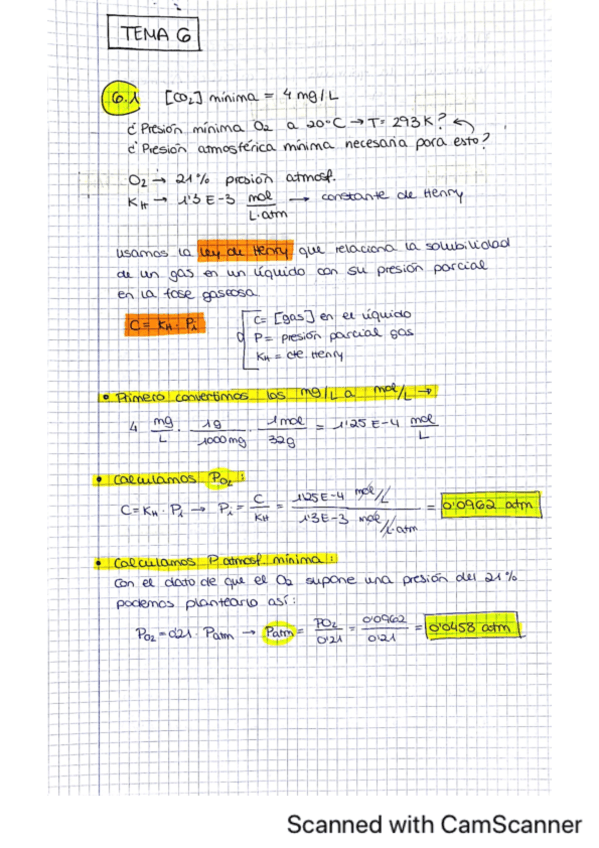 TEMA 6
6.1 [CO₂] mínima = 4 mg/L
¿Presión mínima O₂ a 20°C → T= 293K?
¿Presión atmosférica mínima necesaria para esto?
O₂ → 21% presión atmosf.
KH → 1'3 E-3 mol/L·atm → constante de Henry
usamos la ley de Henry que relaciona la solubilidad
de un gas en un líquido con su presión parcial
en la fase gaseosa
C = KH · Pi
C= [gas] en el líquido
P= presión parcial gas
KH = cte. Henry
• Primero convertimos los mg/L a mol/L →
4 mg/L · 1g/1000mg · 1mol/32g = 1'25 E-4 mol/L
• Calculamos PO₂ :
C= KH · Pi → Pi = C/KH = 1'25E-4 mol/L / 1'3E-3 mol/L·atm = 0'0962 atm
• Calculamos P atmosf. mínima :
Con el dato de que el O₂ supone una presión del 21%
podemos plantearlo así :
PO₂ = 0'21 · Patm → Patm = PO₂/0'21 = 0'0962/0'21 = 0'0458 atm
Scanned with CamScanner